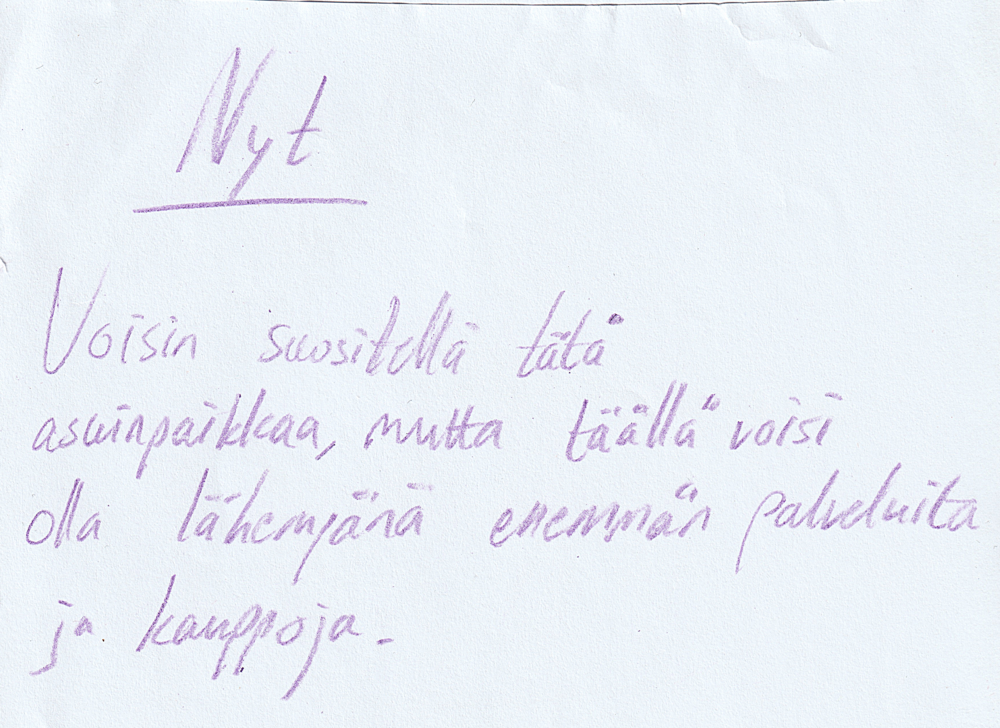 Nyt
Voisin suositella tätä
asuinpaikkaa, mutta täällä voisi
olla lähempänä enemmän palveluita
ja kauppoja.